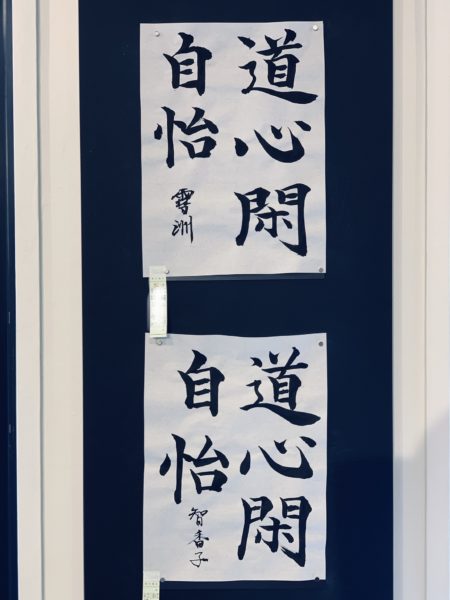 道心閑
自怡
道心閑
自怡
智香子